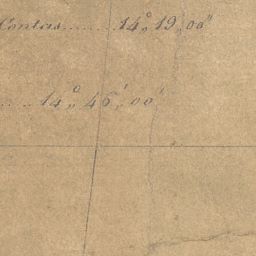 Contas....... 14°,, 19,, 00"
..... 14°,, 46',, 00"